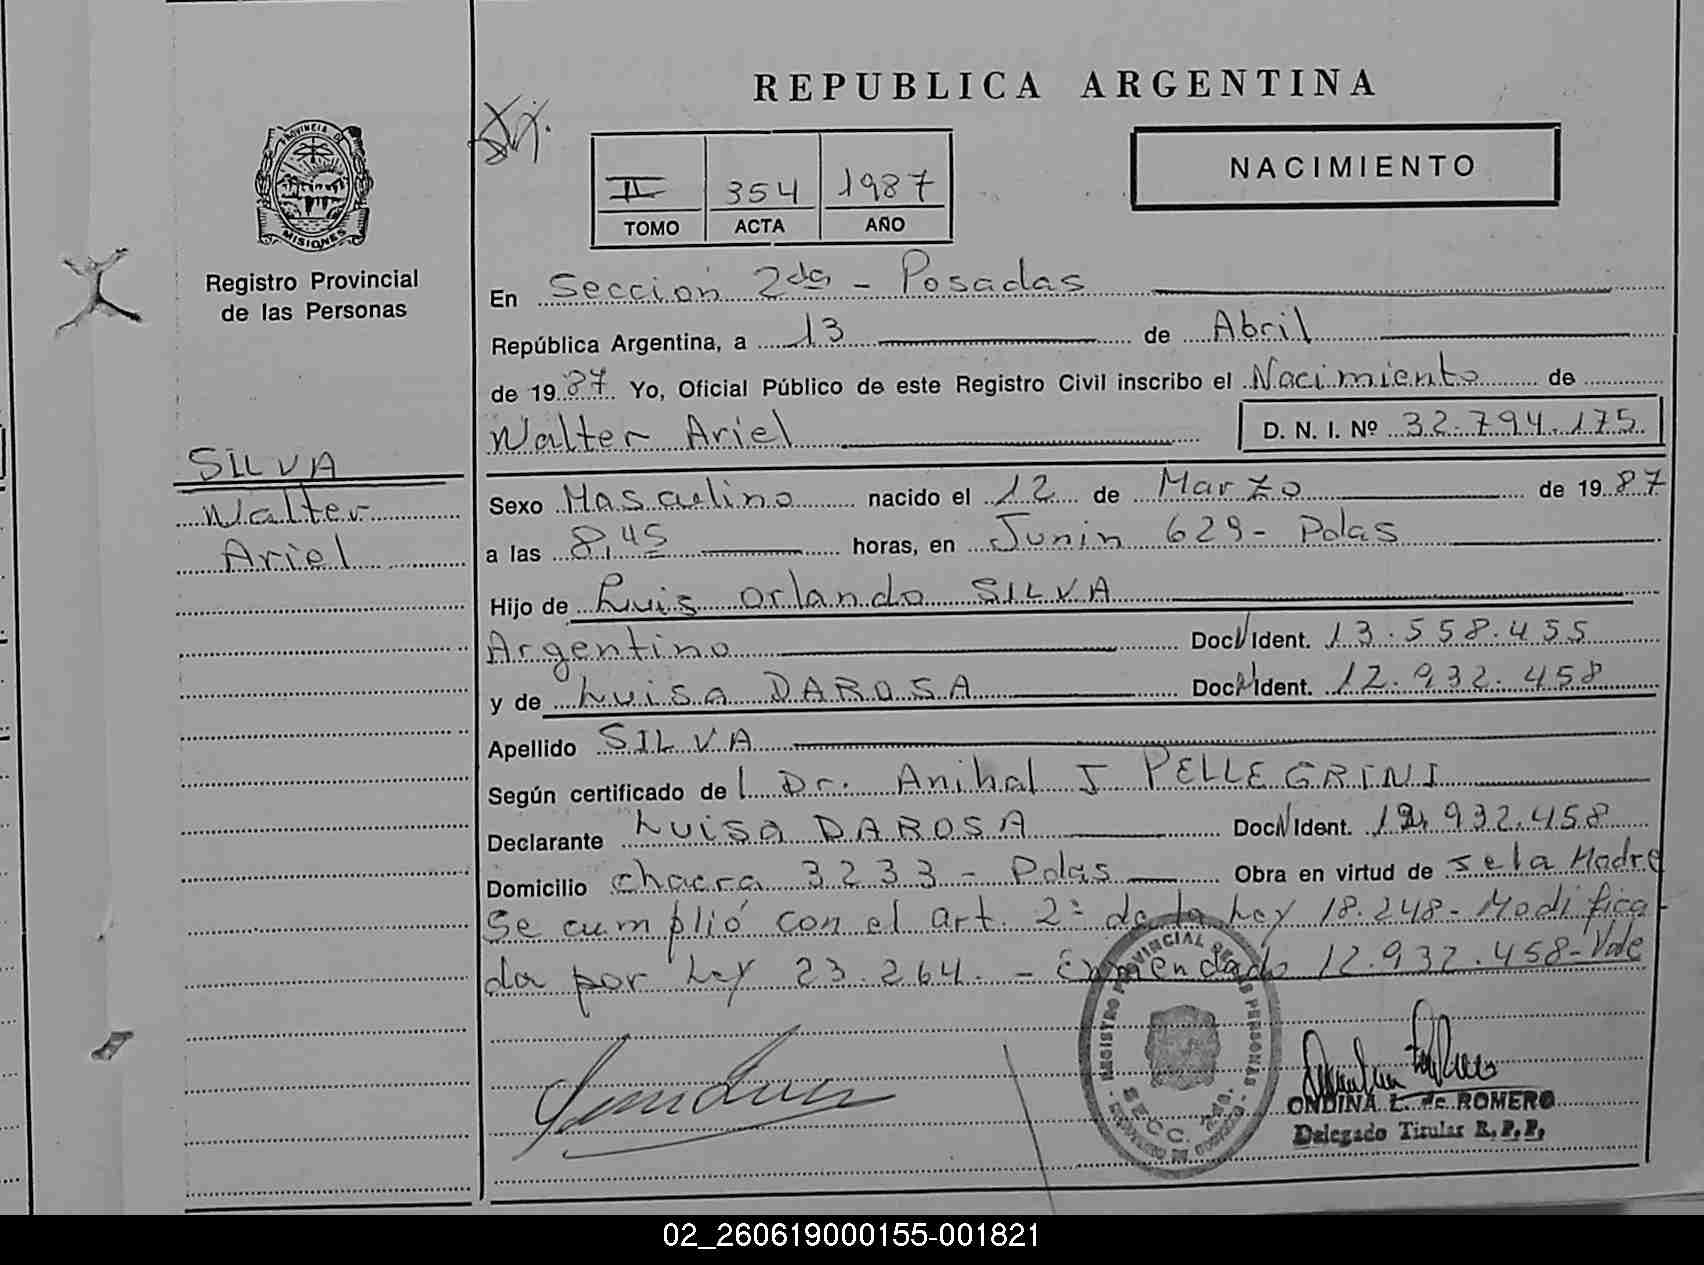 REPUBLICA ARGENTINA
NACIMIENTO
II 354 1987
TOMO ACTA AÑO
PROVINCIA DE
MISIONES
Registro Provincial
de las Personas
SILVA
Walter
Ariel
En Sección 2da - Posadas
República Argentina, a 13 de Abril
de 1987 Yo, Oficial Público de este Registro Civil inscribo el Nacimiento de
Walter Ariel D. N. I. Nº 32.794.175
Sexo Masculino nacido el 12 de Marzo de 1987
a las 8,45 horas, en Junin 629 - Pdas
Hijo de Luis Orlando SILVA
Argentino Doc. Ident. 13.558.455
y de Luisa DAROSA Doc. Ident. 12.932.458
Apellido SILVA
Según certificado de l Dr. Anibal J PELLEGRINI
Declarante Luisa DAROSA Doc. Ident. 12.932.458
Domicilio chacra 3233 - Pdas Obra en virtud de se la Madre
Se cumplió con el art. 2º de la Ley 18.248 - Modifica-
da por Ley 23.264. - Enmendado 12.932.458 - Vale
REGISTRO PROVINCIAL DE LAS PERSONAS
SECC. 2da.
ONDINA L. de ROMERO
Delegado Titular R.P.P.
02_260619000155-001821